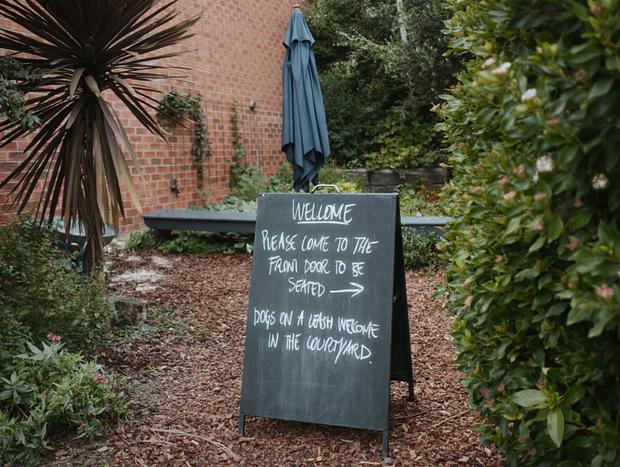 WELCOME
PLEASE COME TO THE
FRONT DOOR TO BE
SEATED →
DOGS ON A LEASH WELCOME
IN THE COURTYARD.